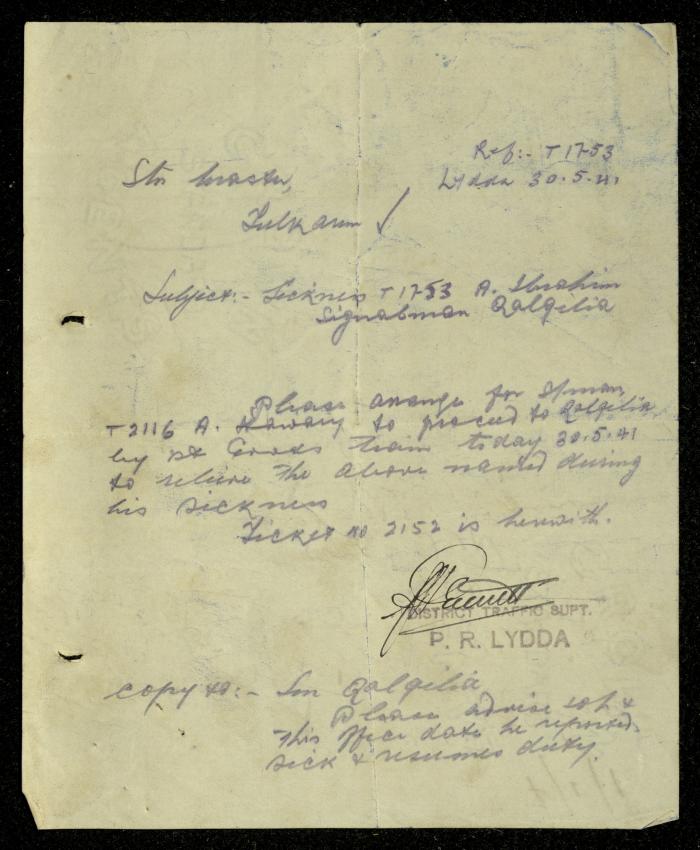 Ref:- T 1753
Lydda 30.5.41
Stn Master,
Tulkarm
Subject:- Sickness T 1753 A. Ibrahim
Signalman Qalqilia
Please arrange for S/man
T2116 A. Hawary to proceed to Qalqilia
by 1st Goods train today 30.5.41
to relieve the above named during
his sickness
Ticket no 2152 is herewith.
DISTRICT TRAFFIC SUPT.
P. R. LYDDA
copy to:- Sm Qalqilia
Please advise &
this office date he reported
sick & resumes duty.